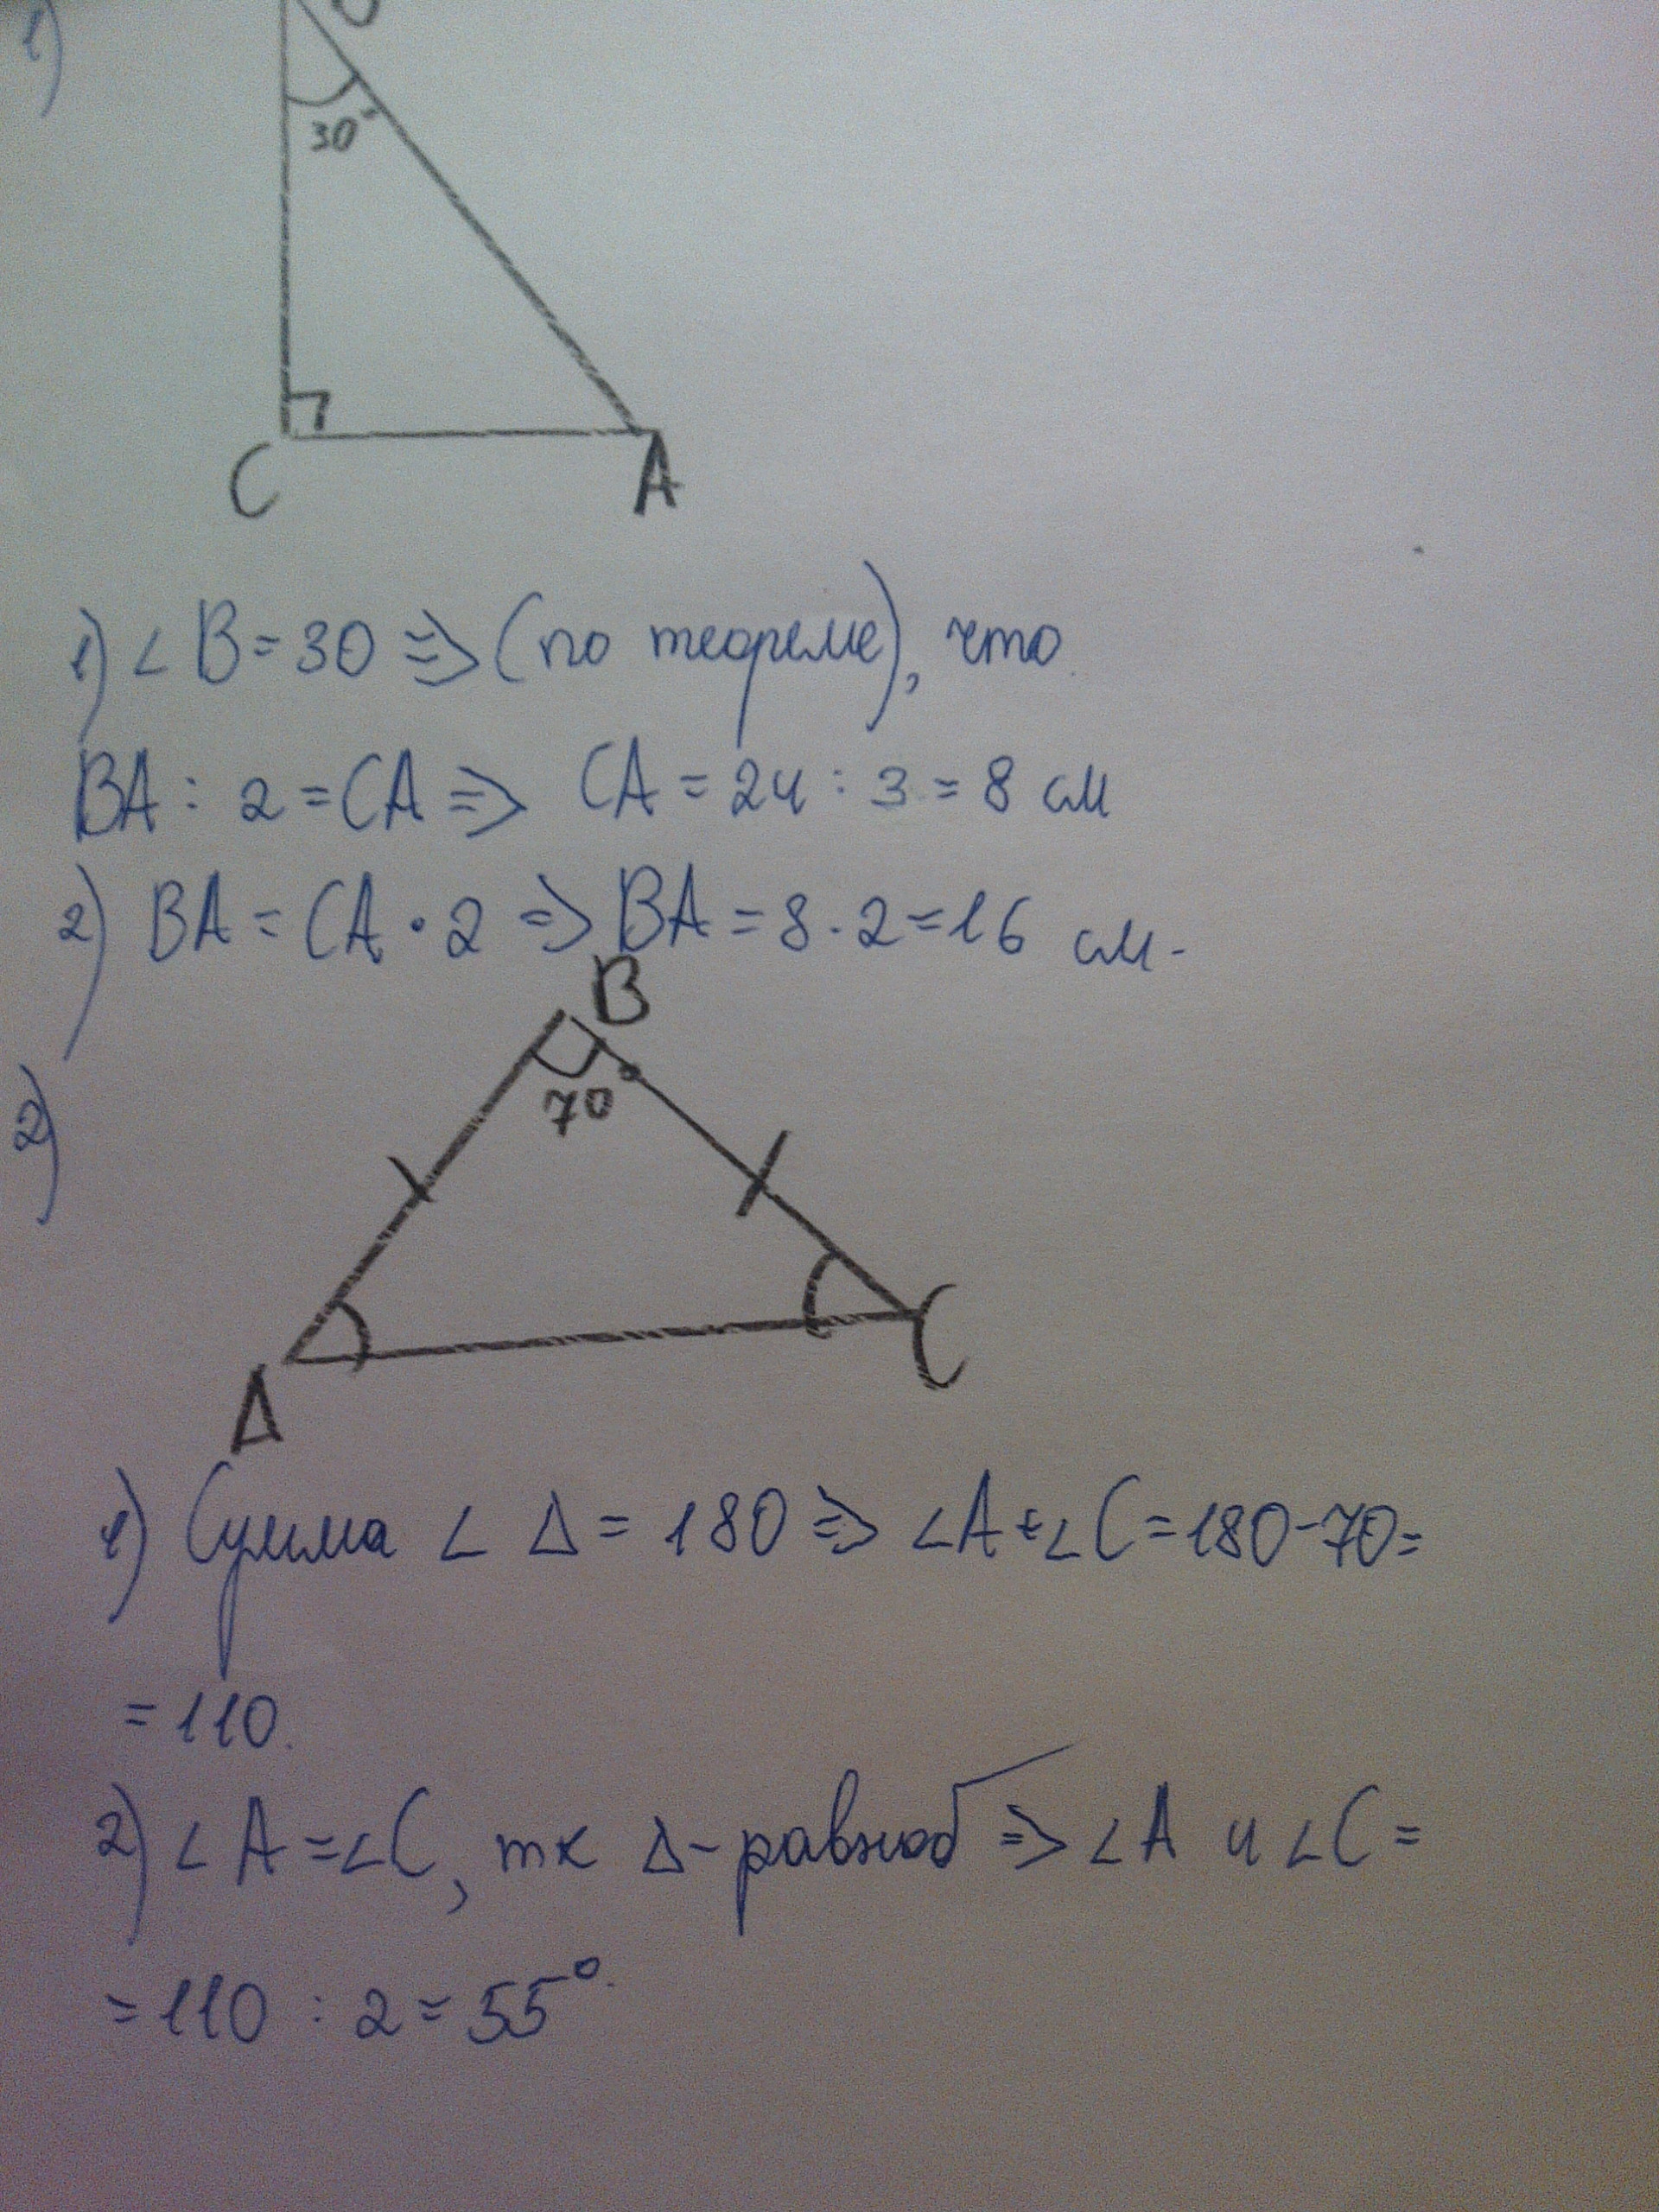 1)
30°
C
A
1) ∠ B = 30 => (по теореме), что
BA : 2 = CA => CA = 24 : 3 = 8 см
2) BA = CA · 2 => BA = 8 · 2 = 16 см.
2)
B
70°
A
C
1) Сумма ∠ Δ = 180 => ∠A + ∠C = 180 - 70 =
= 110.
2) ∠A = ∠C, тк Δ - равноб => ∠A и ∠C =
= 110 : 2 = 55°.